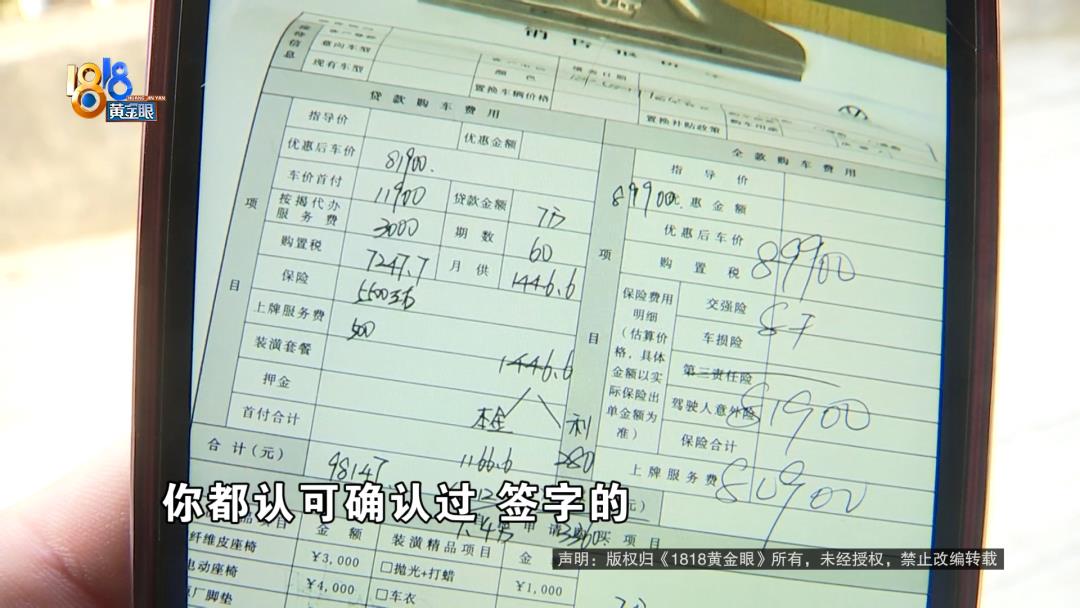 1818
HUANG JIN YAN
黄金眼
意向车型
现有车型
颜色
置换车辆价格
置换补贴政策
贷款购车费用
全款购车费用
指导价
优惠金额
优惠后车价
81900.
车价首付
11900
贷款金额
7万
按揭代办服务费
3000
期数
60
购置税
7247.7
月供
1446.6
保险
5500
上牌服务费
500
装潢套餐
押金
首付合计
合计(元)
98147
1446.6
本金
利
1166.6
280
项
目
指导价
89900
优惠金额
优惠后车价
89900
购置税
保险费用明细(估算价格,具体金额以实际保险出单金额为准)
交强险
车损险
第三责任险
驾驶人意外险
81900
保险合计
上牌服务费
80900
项
目
你都认可确认过 签字的
金额
装潢精品项目
金
纤维皮座椅
¥3,000
□抛光+打蜡
¥1,000
电动座椅
¥4,000
□车衣
厂脚垫
声明：版权归《1818黄金眼》所有，未经授权，禁止改编转载